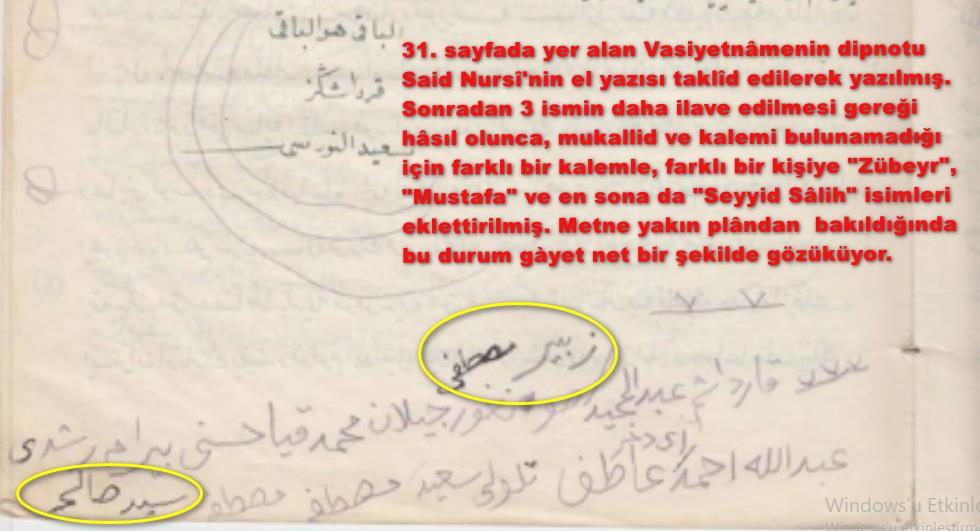 الباقى هو الباقى
قرداشكز
سعيد النورسى
31. sayfada yer alan Vasiyetnâmenin dipnotu
Said Nursî'nin el yazısı taklîd edilerek yazılmış.
Sonradan 3 ismin daha ilave edilmesi gereği
hâsıl olunca, mukallid ve kalemi bulunamadığı
için farklı bir kalemle, farklı bir kişiye "Zübeyr",
"Mustafa" ve en sona da "Seyyid Sâlih" isimleri
eklettirilmiş. Metne yakın plândan bakıldığında
bu durum gàyet net bir şekilde gözüküyor.
زبير مصطفى
قارداشم عبدالمجيد جيلان محمد قيا حسنى بيرام رشدى
عبدالله احمد عاطف تلولى سعيد مصطفى مصطفى سيد صالح
Windows'u Etkinle
Windows'u etkinleştirm